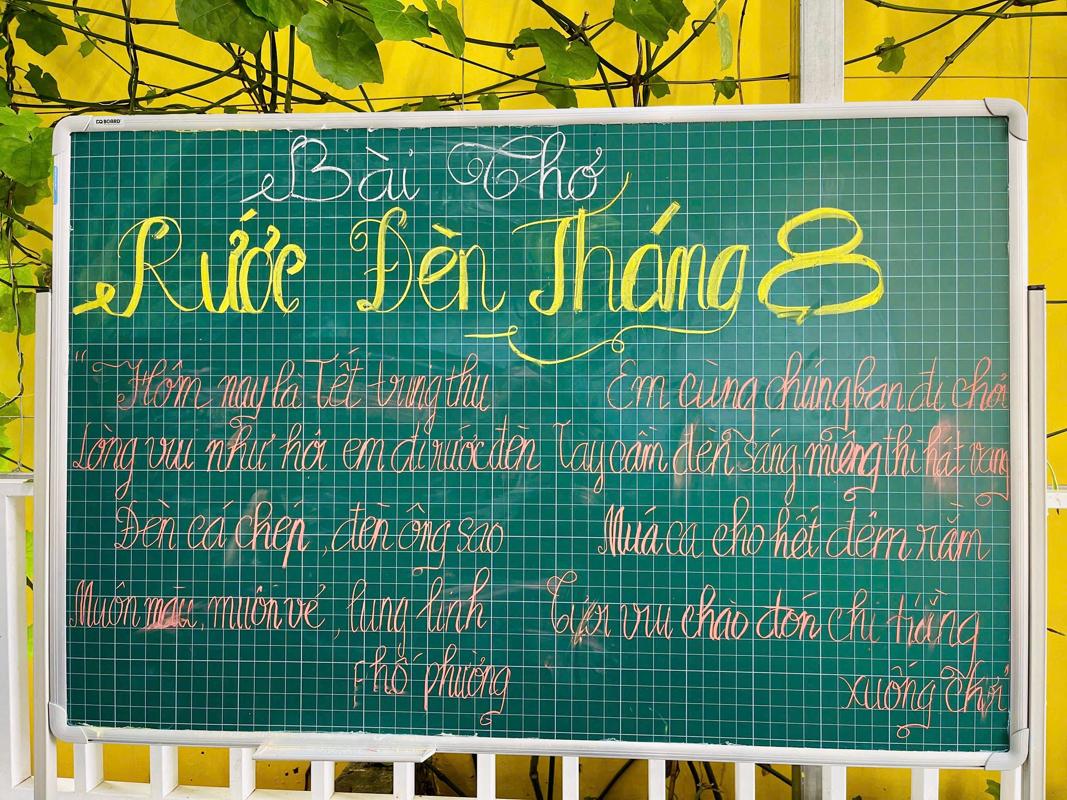 BOARD
Bài Thơ
Rước Đèn Tháng 8
"Hôm nay là Tết trung thu
Lòng vui như hội em đi rước đèn
Đèn cá chép, đèn ông sao
Muôn màu, muôn vẻ, lung linh
phố phường
Em cùng chúng bạn đi chơi
Tay cầm đèn sáng miệng thì hát vang
Múa ca cho hết đêm rằm
Tươi vui chào đón chị trăng
xuống chơi